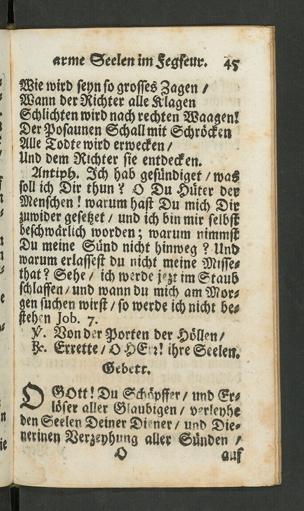 arme Seelen im Fegfeur. 45
Wie wird seyn so grosses Zagen /
Wann der Richter alle Klagen
Schlichten wird nach rechten Waagen!
Der Posaunen Schall mit Schröcken
Alle Todte wird erwecken /
Und dem Richter sie entdecken.
Antiph. Ich hab gesündiget / was
soll ich Dir thun? O Du Hüter der
Menschen! warum hast Du mich Dir
zuwider gesetzet / und ich bin mir selbst
beschwärlich worden; warum nimmst
Du meine Sünd nicht hinweg? Und
warum erlassest du nicht meine Misse-
that? Sehe / ich werde jezt im Staub
schlaffen / und wann du mich am Mor-
gen suchen wirst / so werde ich nicht be-
stehen Job. 7.
℣. Von der Porten der Höllen /
℟. Errette / O HErr! ihre Seelen.
Gebett.
O GOtt! Du Schöpffer / und Er-
löser aller Glaubigen / verleyhe
den Seelen Deiner Diener / und Die-
nerinen Verzeyhung aller Sünden /
O auf